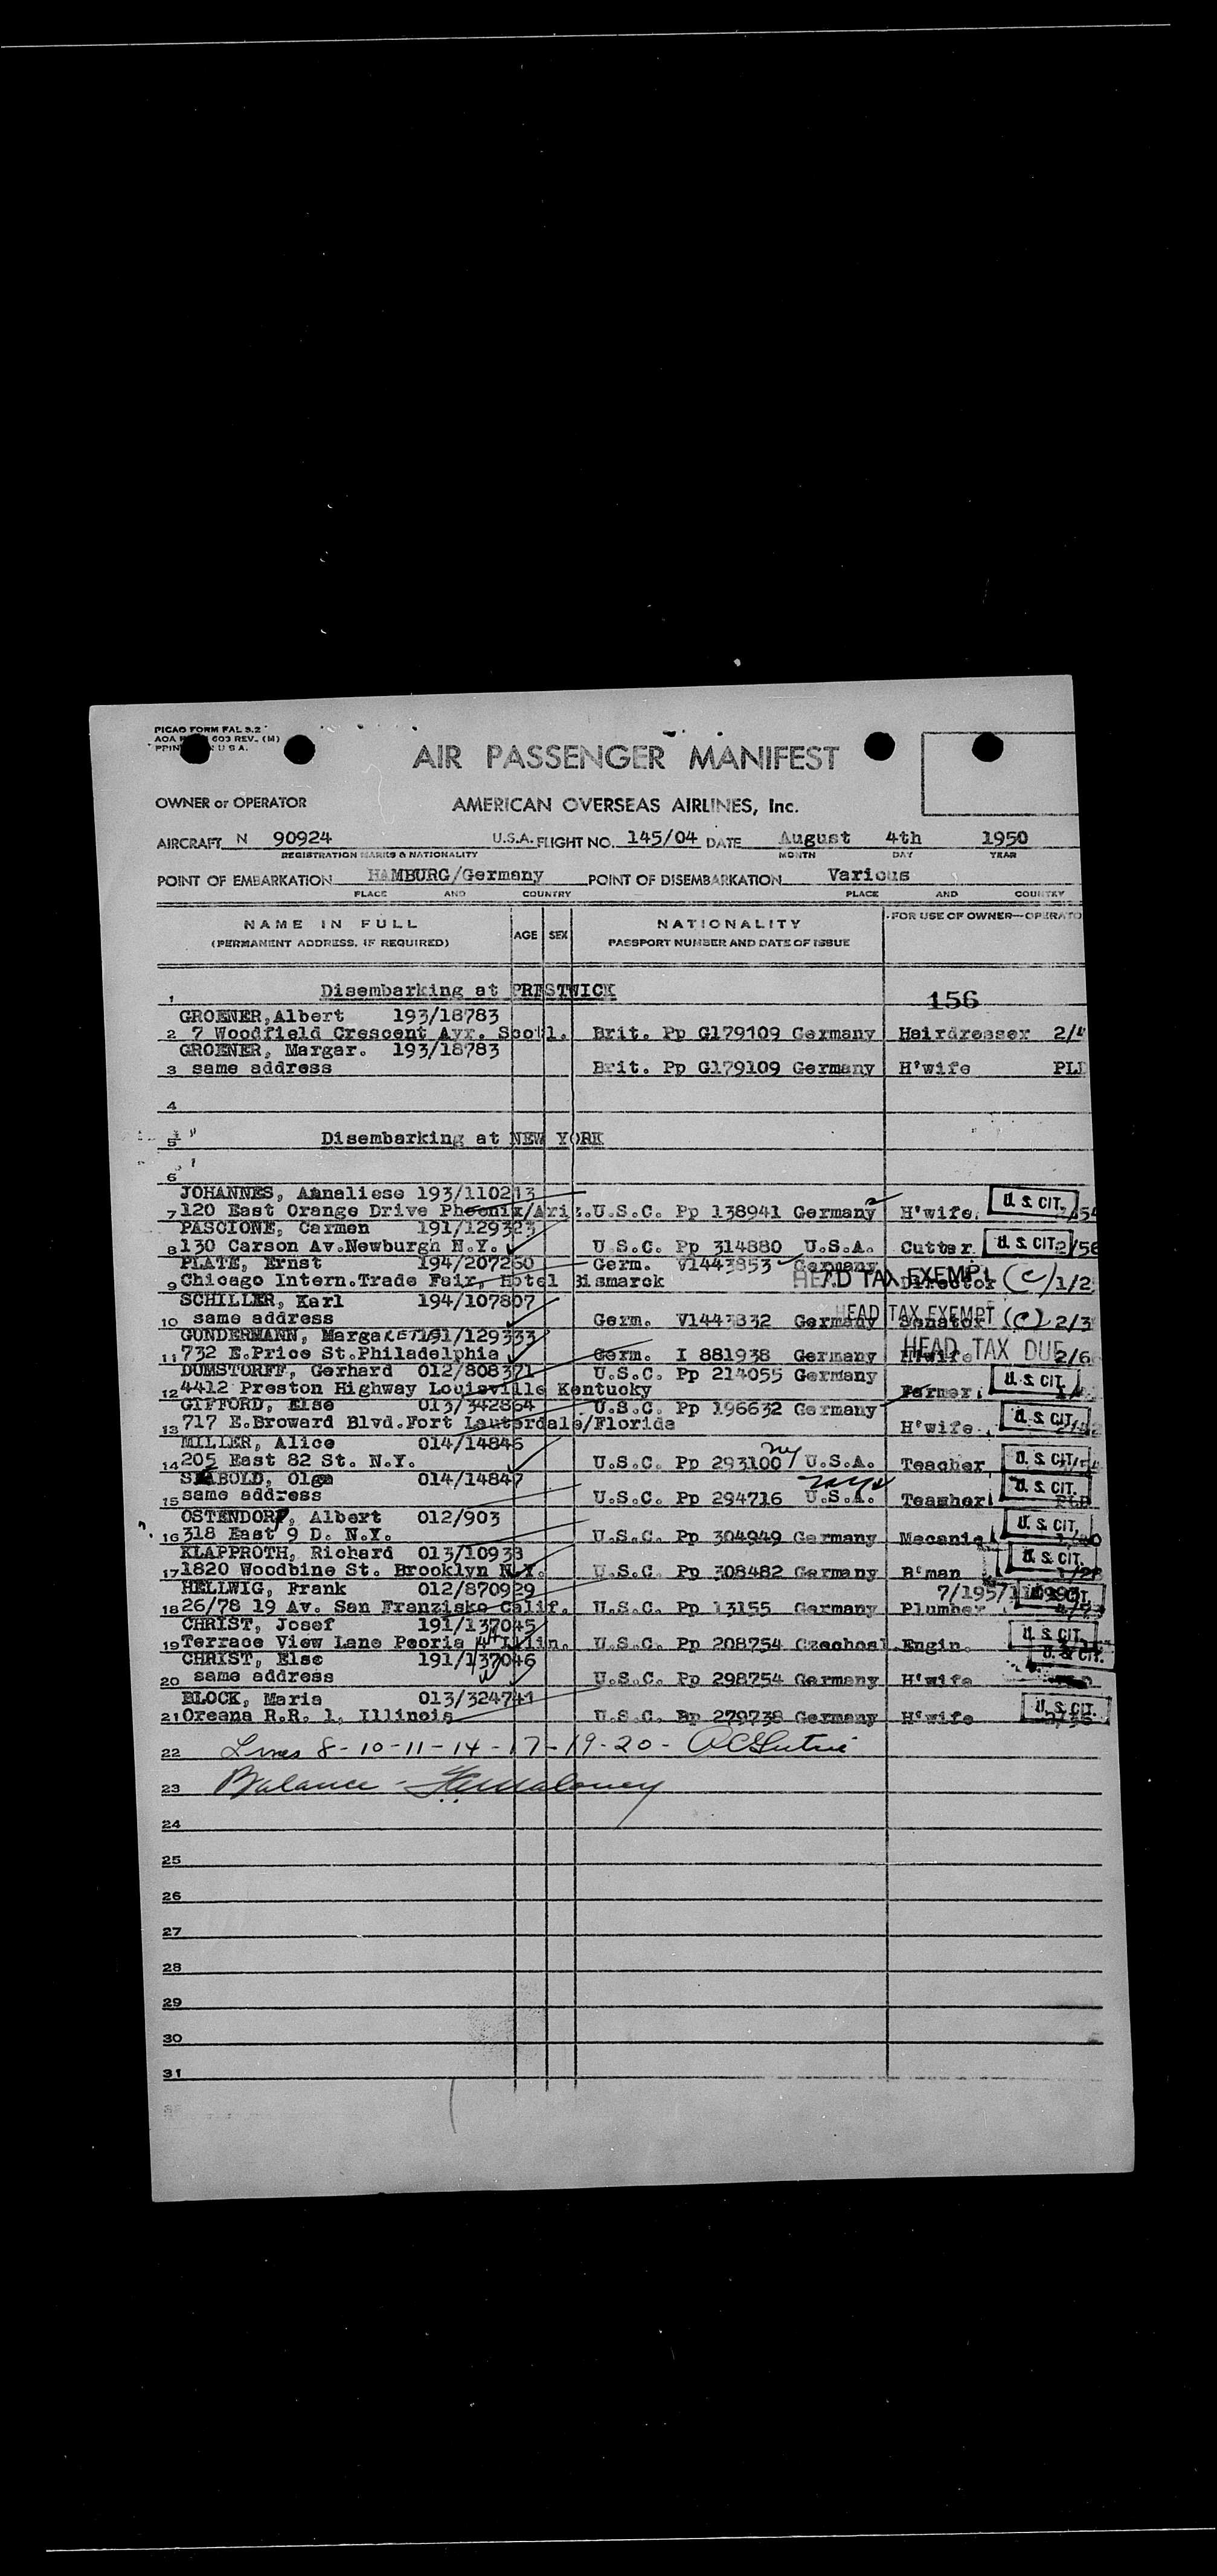 PICAO FORM FAL 3.2
AOA 603 REV. (M)
U S A.
AIR PASSENGER MANIFEST
OWNER or OPERATOR AMERICAN OVERSEAS AIRLINES, Inc.
AIRCRAFT N 90924 U.S.A. FLIGHT NO. 145/04 DATE August 4th 1950
REGISTRATION MARKS & NATIONALITY MONTH DAY YEAR
POINT OF EMBARKATION HAMBURG/Germany POINT OF DISEMBARKATION Various
PLACE AND COUNTRY PLACE AND COUNTRY
NAME IN FULL AGE SEX NATIONALITY FOR USE OF OWNER—OPERATO
(PERMANENT ADDRESS, IF REQUIRED) PASSPORT NUMBER AND DATE OF ISSUE
1 Disembarking at PRESTWICK 156
GROENER, Albert 193/18783
2 7 Woodfield Crescent Ayr. Scotl. Brit. Pp G179109 Germany Hairdresser 2/4
GROENER, Margar. 193/18783
3 same address Brit. Pp G179109 Germany H'wife
4
5 Disembarking at NEW YORK
6
JOHANNES, Annaliese 193/110213
7 120 East Orange Drive Phoenix/Ariz. U.S.C. Pp 138941 Germany H'wife U. S. CIT.
PASCIONE, Carmen 191/129323
8 130 Carson Av. Newburgh N.Y. U.S.C. Pp 314880 U.S.A. Cutter U. S. CIT. 2/56
PLATE, Ernst 194/207260 Germ. V1443853 Germany
9 Chicago Intern. Trade Fair, Hotel Bismarck HEAD TAX EXEMPT Director (C) 1/2
SCHILLER, Karl 194/107807
10 same address Germ. V1443832 Germany HEAD TAX EXEMPT Senator (C) 2/3
GUNDERMANN, Margaret 191/129333
11 732 E. Price St. Philadelphia Germ. I 881938 Germany H'wife HEAD TAX DUE 2/6
DUMSTORFF, Gerhard 012/808371 U.S.C. Pp 214055 Germany
12 4412 Preston Highway Louisville Kentucky Farmer U. S. CIT.
GIFFORD, Else 013/342864 U.S.C. Pp 196632 Germany
13 717 E. Broward Blvd. Fort Lauterdale/Florida H'wife U. S. CIT.
MILLER, Alice 014/14846
14 205 East 82 St. N.Y. U.S.C. Pp 293100 NY U.S.A. Teacher U. S. CIT.
SEABOLD, Olga 014/14847
15 same address U.S.C. Pp 294716 U.S.A. Teacher U. S. CIT.
OSTENDORF, Albert 012/903
16 318 East 9 D. N.Y. U.S.C. Pp 304949 Germany Mecanic U. S. CIT.
KLAPPROTH, Richard 013/10933
17 1820 Woodbine St. Brooklyn N.Y. U.S.C. Pp 308482 Germany B'man U. S. CIT.
HELLWIG, Frank 012/870929
18 26/78 19 Av. San Franzisko Calif. U.S.C. Pp 13155 Germany Plumber
CHRIST, Josef 191/137045
19 Terrace View Lane Peoria Illin. U.S.C. Pp 208754 Czechosl. Engin. U. S. CIT.
CHRIST, Else 191/137046 U. S. CIT.
20 same address U.S.C. Pp 298754 Germany H'wife
BLOCK, Maria 013/324741
21 Oreana R.R. 1, Illinois U.S.C. Pp 279738 Germany H'wife U. S. CIT.
22 Lines 8-10-11-14-17-19-20-
23 Balance -
24
25
26
27
28
29
30
31